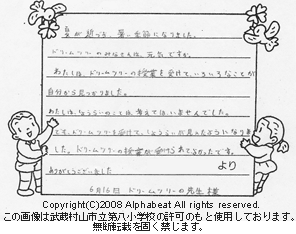 夏が近づき、暑い季節になりました。
ドリームツリーのみなさんは、元気ですか。
わたしは、ドリームツリーの授業を受けて、いろいろなことが
自分から見つかりました。
わたしは、しょうらいのことは、考えてはいませんでした。
ドリームツリーを受けて、しょうらいが見えたようになりま
した。ドリームツリーの授業が受けられてよかったです。
ありがとうございました
より
6月16日 ドリームツリーの先生様
Copyright(C)2008 Alphabeat All rights reserved.
この画像は武蔵村山市立第八小学校の許可のもと使用しております。
無断転載を固く禁じます。